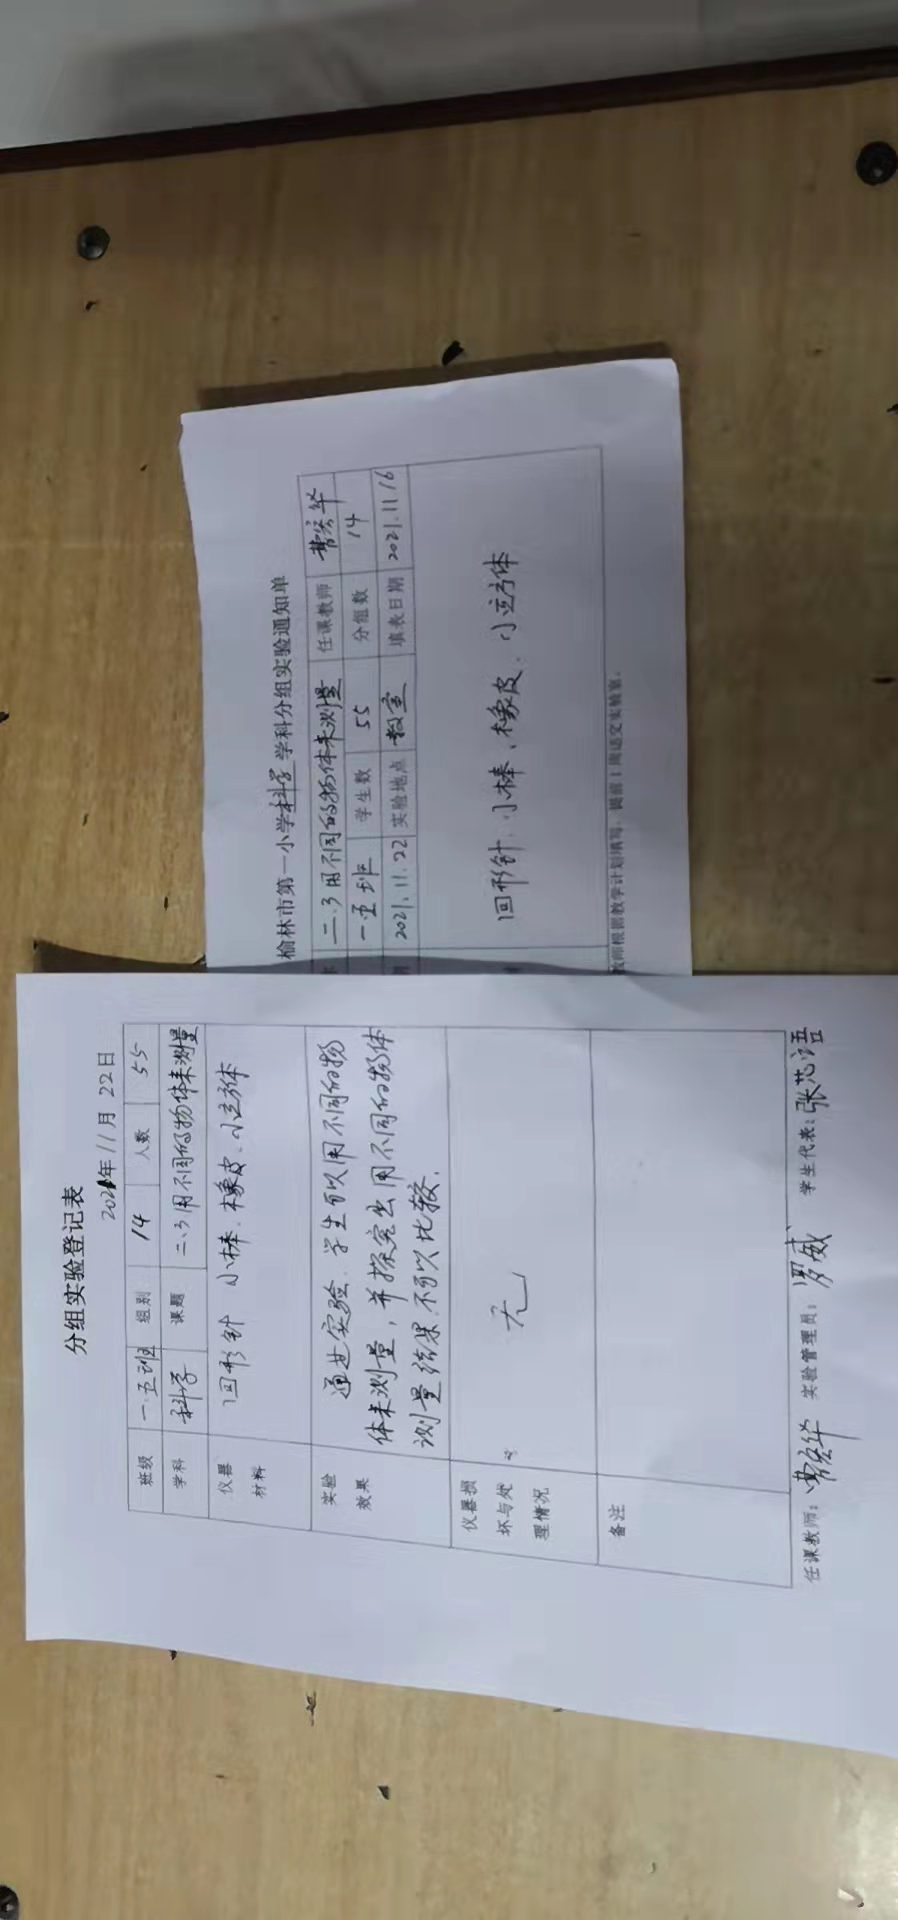 分组实验登记表
2021年11月22日
班级 一.五班 组别 14 人数 55
学科 科学 课题 二、3用不同的物体来测量
仪器 回形针 小棒、橡皮、小立方体
材料
实验 通过实验,学生可以用不同的物
效果 体来测量,并探究出用不同的物体
测量结果不可以比较.
仪器损
坏与处 无
理情况
备注
任课教师: 实验管理员:罗威 学生代表:张芯语
榆林市第一小学科学学科分组实验通知单
二、3用不同的物体来测量 任课教师
一.五班 学生数 55 分组数 14
2021.11.22 实验地点 教室 填表日期 2021.11.16
回形针、小棒、橡皮、小立方体
教师根据教学计划填写,提前1周送交实验室。